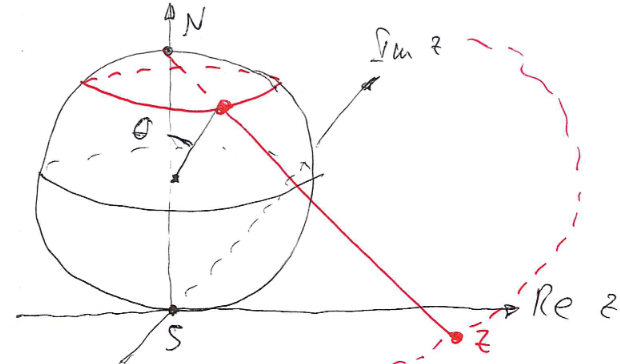 N
Im z
θ
Re z
S
z